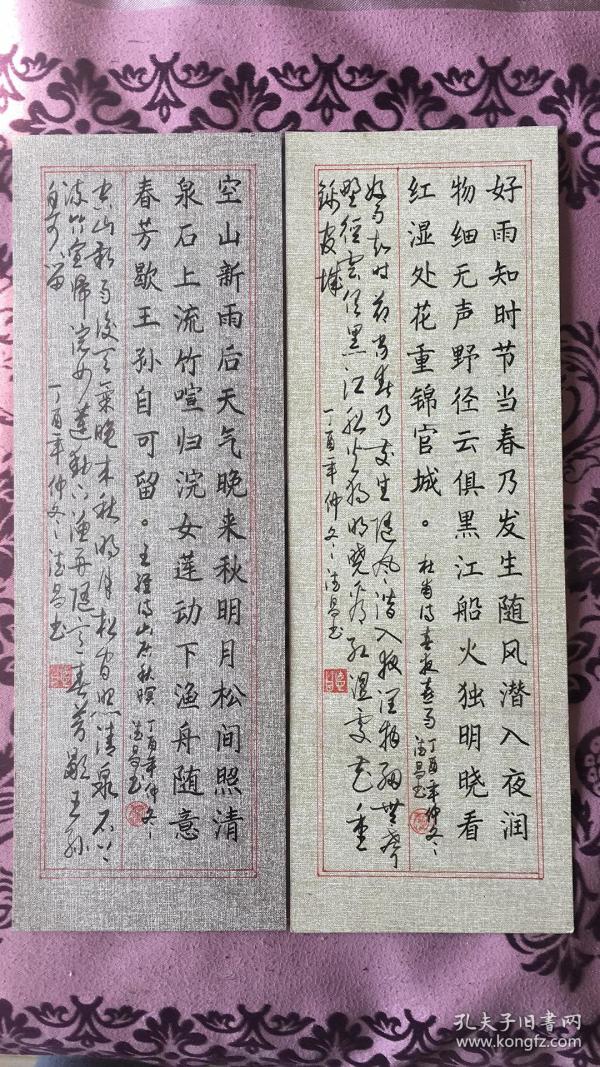 好雨知时节当春乃发生随风潜入夜润
物细无声野径云俱黑江船火独明晓看
红湿处花重锦官城。
杜甫诗春夜喜雨
丁酉年仲冬
清昌书
好雨知时节当春乃发生随风潜入夜润物细無声
野径雲俱黑江船火独明晓看红湿处花重
锦官城
丁酉年仲冬清昌书
空山新雨后天气晚来秋明月松间照清
泉石上流竹喧归浣女莲动下渔舟随意
春芳歇王孙自可留。
王维诗山居秋暝
丁酉年仲冬
清昌书
空山新雨後天氣晚来秋明月松间照清泉石上
流竹喧归浣女莲动下渔舟随意春芳歇王孙
自可留
丁酉年仲冬清昌书
孔夫子旧书网
www.kongfz.com